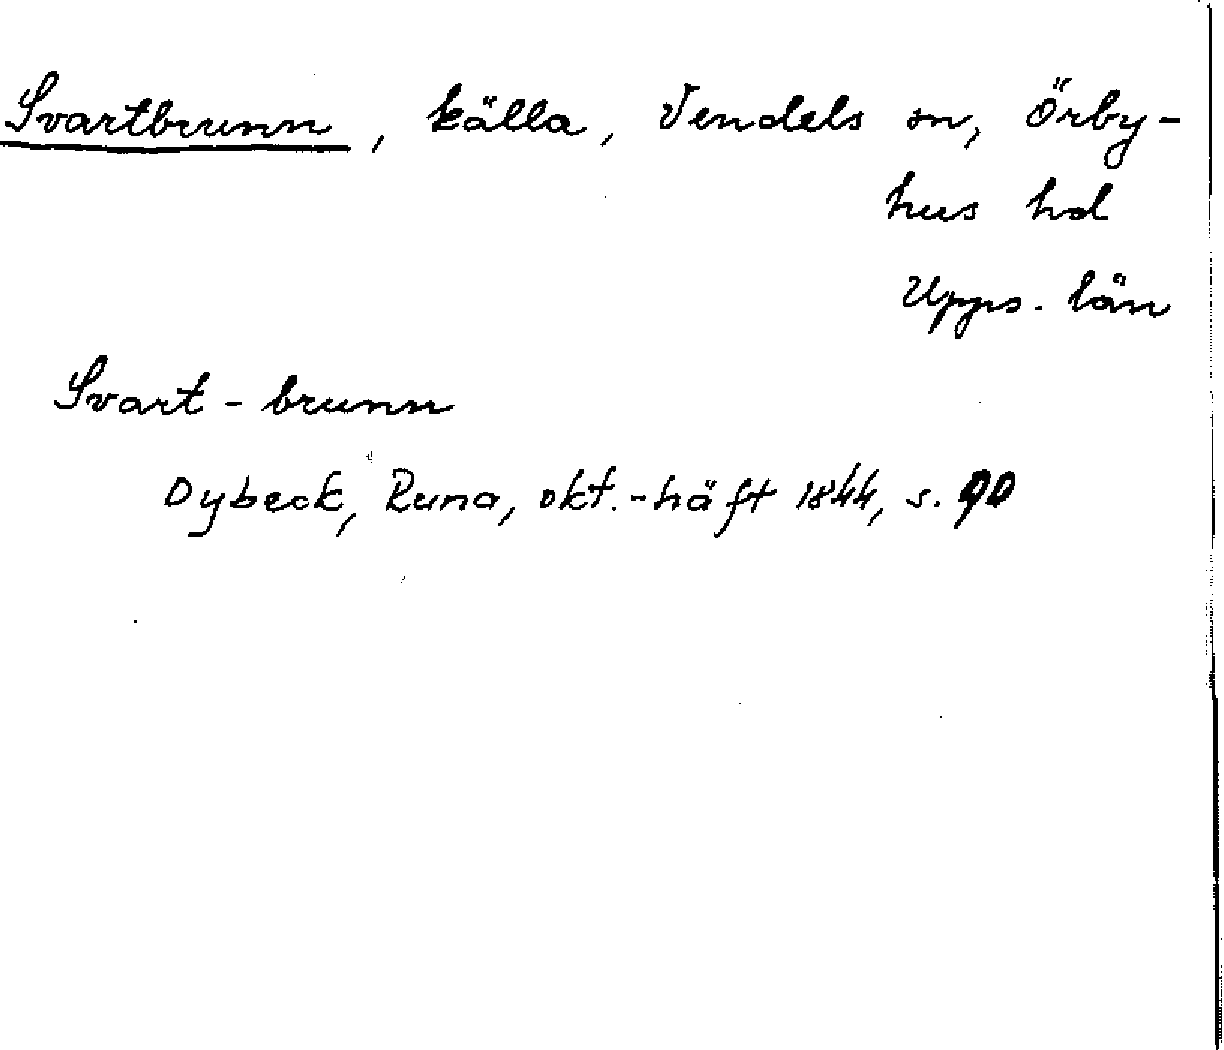 Svartbrunn, källa, Vendels sn, Örby-
hus hd
Upps. län
Svart - brunn
Dybeck, Runa, okt.-häft 1844, s. 90